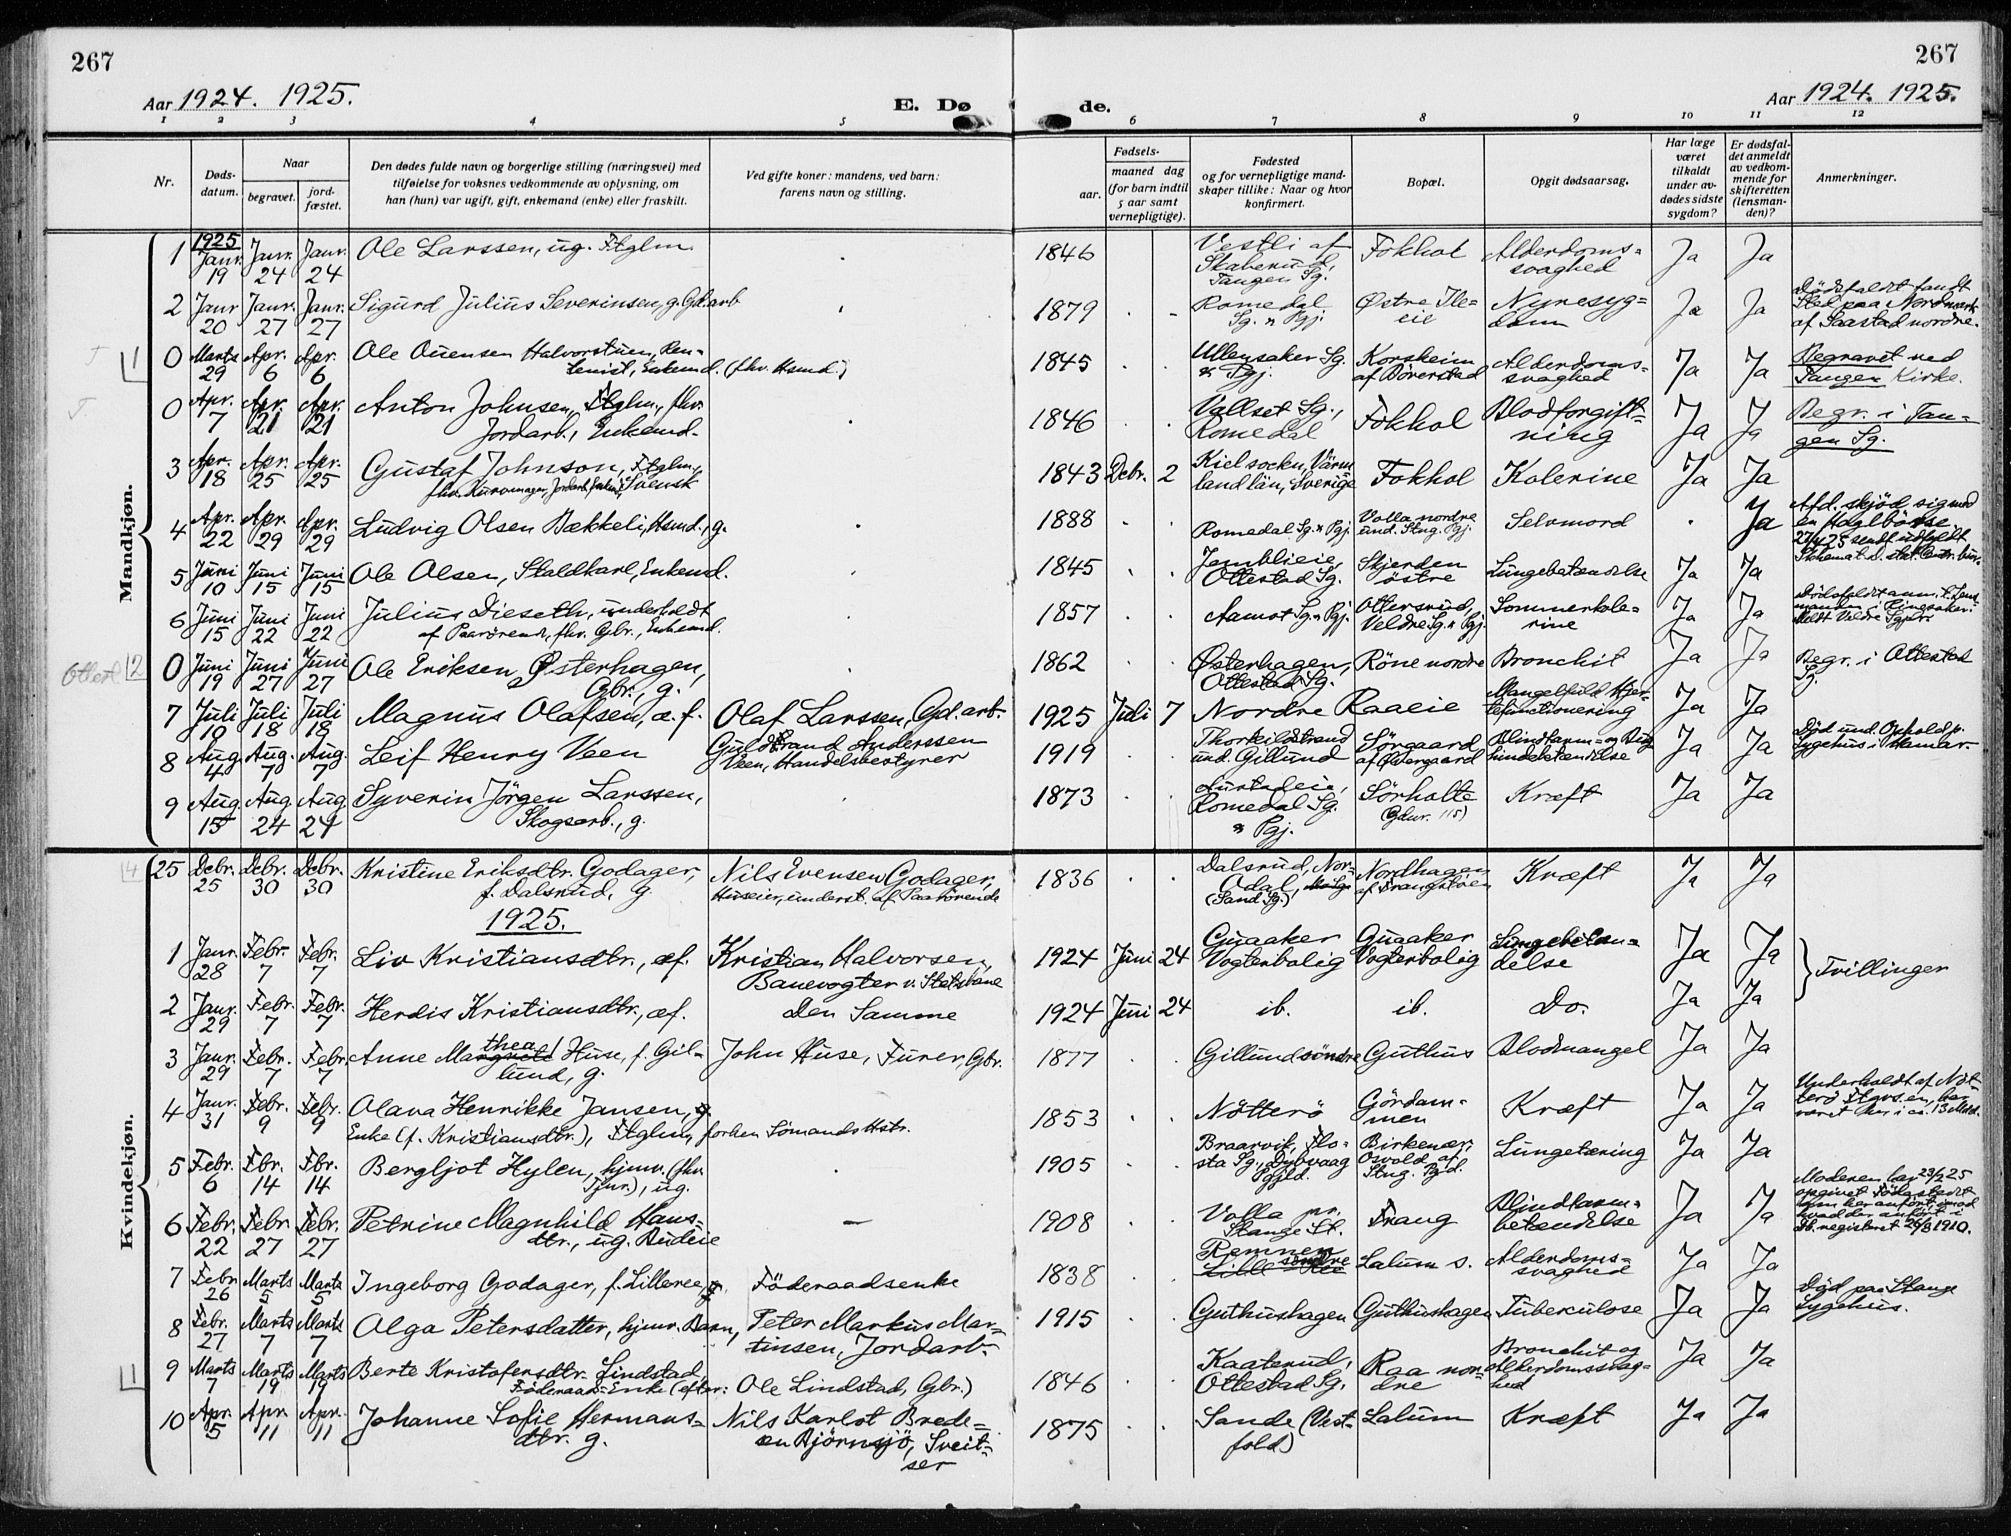 267
267
Aar 1924. 1925.
E. Dø
de.
Aar 1924. 1925.
1 2 3 4 5 6 7 8 9 10 11 12
Nr.
Døds-
datum.
Naar
begravet.
jord-
fæstet.
Den dødes fulde navn og borgerlige stilling (næringsvei) med
tilføielse for voksnes vedkommende av oplysning, om
han (hun) var ugift, gift, enkemand (enke) eller fraskilt.
Ved gifte koner: mandens, ved barn:
farens navn og stilling.
Fødsels-
aar.
maaned dag
(for barn indtil
5 aar samt
vernepligtige).
Fødested
og for vernepligtige mand-
skaper tillike: Naar og hvor
konfirmert.
Bopæl.
Opgit dødsaarsag.
Har læge
været
tilkaldt
under av-
dødes sidste
sygdom?
Er dødsfal-
det anmeldt
av vedkom-
mende for
skifteretten
(lensman-
den)?
Anmerkninger.
Mandkjøn.
1 1925 Janr. 19 Janr. 24 Janr. 24 Ole Larssen, ug. Ftglm. 1846 Vestli af Skaberud, Tangen Sg. Fokhol Alderdoms-svaghed Ja Ja
2 Janr 20 Janr. 27 Janr. 27 Sigurd Julius Severinsen, g. Gd.arb 1879 Romedal Sg. & Pgj. Østre Ile-eie Nyresyg-dom Ja Ja Dödsfaldet fandt Sted paa Nordmark af Saastad nordre.
0 Marts 29 Apr. 6 Apr. 6 Ole Ouensen Halvorstuen, Ren-tenist, Enkemd. (fhv. Hsmd.) 1845 Ullensaker Sg. & Pgj. Korsheim af Bøverstad Alderdoms-svaghed Ja Ja Begravet ved Tangen Kirke.
0 Apr. 7 Apr. 21 Apr. 21 Anton Johnsen, Ftglm., fhv. Jordarb., Enkemd. 1846 Vallset Sg., Romedal Fokhol Blodforgift-ning Ja Ja Begr. i Tan-gen Sg.
3 Apr. 18 Apr. 25 Apr. 25 Gustaf Johnson, Ftglm., fhv. Kurvmager, Svensk 1843 Debr. 2 Kiel socken, Värm land län, Sverige Fokhol Kolerine Ja Ja
4 Apr. 22 Apr. 29 Apr. 29 Ludvig Olsen Bækkeli, Hsmd., g. 1888 Romedal Sg. & Pgj. Volla nordre und. Stng. Pgj. Selvmord Ja Afd. skjød sig med en Haglbösse. 27/4 25 sendt udfyldt Skhemat. D. stat. Centr. bür.
5 Juni 10 Juni 15 Juni 15 Ole Olsen, Staldkarl, Enkemd. 1845 Jemblieie, Ottestad Sg. Skjerden østre Lungebetændelse Ja Ja
6 Juni 15 Juni 22 Juni 22 Julius Dieseth, underholdt af Paarörende, fhv. Gbr., Enkemd. 1857 Aamot Sg. & Pgj. Ottersrud, Veldre Sg. & Pgj. Sommerkole-rine Ja Ja Dödsfaldet anm. f. Lens manden i Ringsaker. Meldt Veldre Sgpr.
0 Juni 19 Juni 27 Juni 27 Ole Eriksen Østerhagen, Gbr., g. 1862 Østerhagen, Ottestad Sg. Röne nordre Bronchit Ja Ja Begr. i Ottestad Sg.
7 Juli 10 Juli 18 Juli 18 Magnus Olafsen, æ. f. Olaf Larssen, Gd. arb. 1925 Juli 7 Nordre Raaeie Mangelfuld Hjer-tefunctionering Ja Ja
8 Aug. 4 Aug. 7 Aug. 7 Leif Henry Veen Guldbrand Anderssen Veen, Handelsbestyrer 1919 Thorkildstrand und. Gillund Sörgaard af Øvergaard Blindtarm- og Bug hindebetændelse Ja Ja Död und. Ophold p. Sygehus i Hamar.
9 Aug. 15 Aug. 24 Aug. 24 Syverin Jörgen Larssen, Skogsarb., g. 1873 Aurstadeie, Romedal Sg. & Pgj. Sörholte (Gdnr. 115) Kræft Ja Ja
Kvindekjøn.
25 Debr. 25 Debr. 30 Debr. 30 Kristine Eriksdtr. Godager, f. Dalsrud, g. Nils Evensen Godager, Huseier, underst. af Paarörende 1836 Dalsrud, Nor-Odal, (Sand Sg.) Nordhagen af Frangstøen Kræft Ja Ja
1925.
1 Janr. 28 Febr. 7 Febr. 7 Liv Kristiansdtr., æf. Kristian Halvorsen, Banevogter v. Statsbane 1924 Juni 24 Guaaker Vogterbolig Guaaker Vogterbolig Lungebetæn-delse Ja Ja Tvillinger
2 Janr. 29 Febr. 7 Febr. 7 Herdis Kristiansdtr., æf. Den Samme 1924 Juni 24 ib. ib. Do. Ja Ja
3 Janr. 29 Febr. 7 Febr. 7 Anne Marthea Huse, f. Gil-lund, g. John Huse, Furer, Gbr. 1877 Gillund söndre Guthus Blodmangel Ja Ja
4 Janr. 31 Febr. 9 Febr. 9 Olava Henrikke Jansen, Enke (f. Kristiansdtr.), Ftglm, forhen Sömands Hstr. 1853 Nötterö Gördam-men Kræft Ja Ja Underholdt af Nöt-terö Ftgvs.en, har været her i ca. 13 Mdd.
5 Febr. 6 Fbr. 14 Fbr. 14 Bergljot Hylen, hjmv. (fhv. Tjnr.), ug. 1905 Braarvik, Flo-sta Sg., Dybvaag Pgjld. Birkenær, Osvold af Stng. Pgd. Lungetæring Ja Ja
6 Febr. 22 Febr. 27 Febr. 27 Petrine Magnhild Hans-dtr., ug. Budeie — 1908 Volla nr. Stange St. Frang Blindtarm-betændelse Ja Ja Moderen har 23/2 25 opgivet Födestedet som her anfört, imod hvad der anfört i Db.registeret 26/3 1910.
7 Febr 26 Marts 5 Marts 5 Ingeborg Godager, f. Lilleree, Föderaadsenke 1838 Remmen söndre Lalum s. Alderdoms-svaghed Ja Ja
8 Febr. 27 Marts 7 Marts 7 Olga Petersdatter, hjmv. Barn, Peter Markus Mar-tinsen, Jordarb. 1915 Guthushagen Guthushagen Tuberculose Ja Ja Död paa Stange Sygehus.
9 Marts 7 Marts 19 Marts 19 Berte Kristofersdtr. Lindstad, Föderaads-Enke (efter: Ole Lindstad, Gbr.) 1846 Kaaterud, Ottestad Sg. Raa nor-dre Bronchit og Alderdomssvag-hed Ja Ja
10 Apr. 5 Apr. 11 Apr. 11 Johanne Sofie Hermans-dtr. g. Nils Karlot Brede-sen Björnsjö, Sveit-ser 1875 Sande (Vest-fold) Lalum Kræft Ja Ja